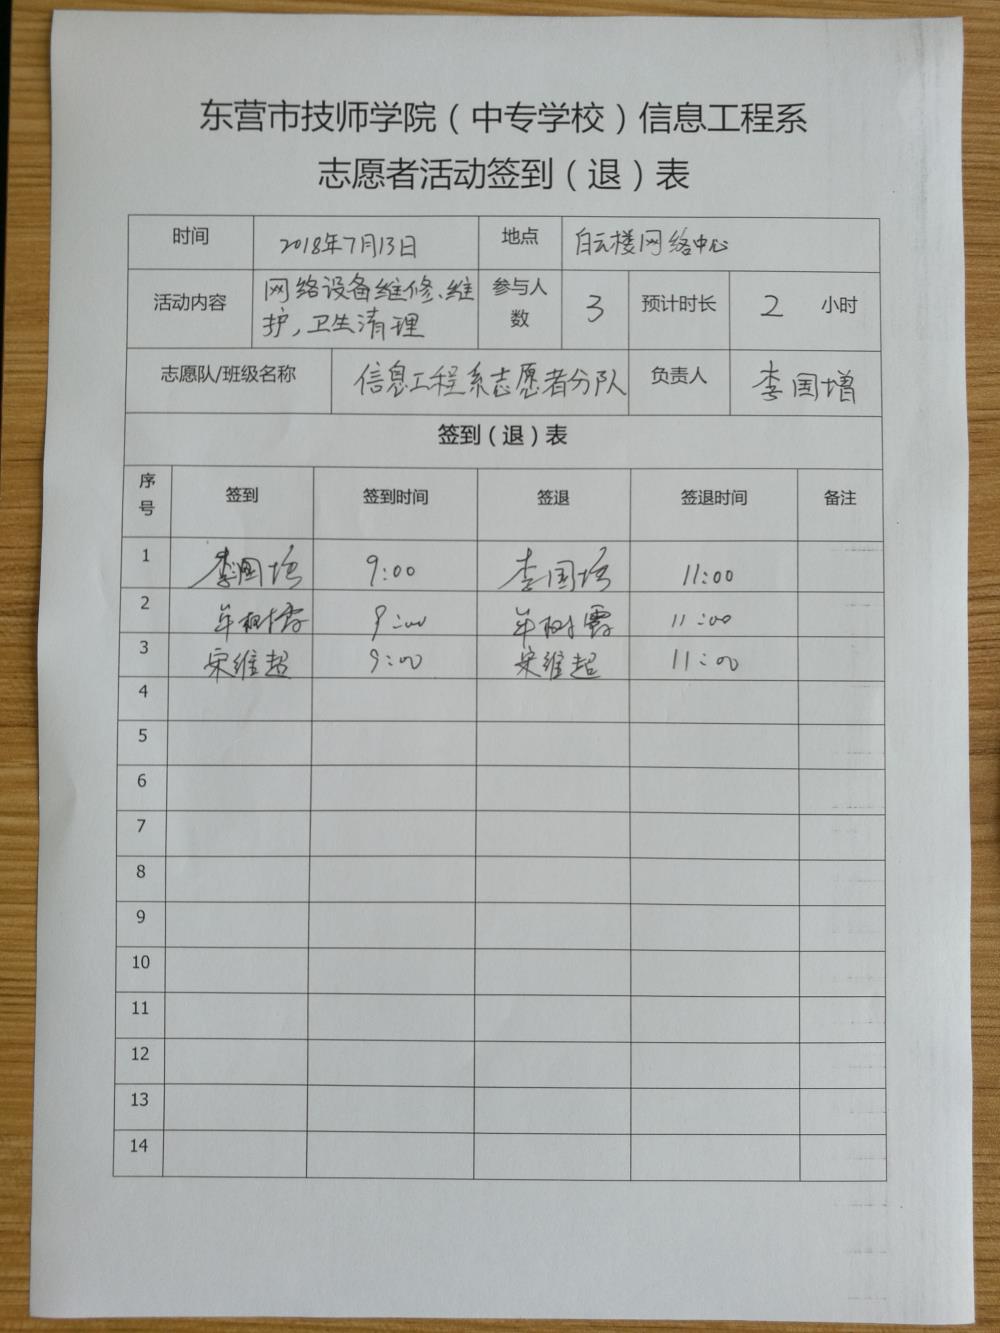 东营市技师学院（中专学校）信息工程系
志愿者活动签到（退）表
时间 2018年7月13日 地点 白云楼网络中心
活动内容 网络设备维修、维护，卫生清理 参与人数 3 预计时长 2 小时
志愿队/班级名称 信息工程系志愿者分队 负责人 李国增
签到（退）表
序号 签到 签到时间 签退 签退时间 备注
1 李国增 9:00 李国增 11:00
2 9:00 11:00
3 宋维超 9:00 宋维超 11:00
4
5
6
7
8
9
10
11
12
13
14